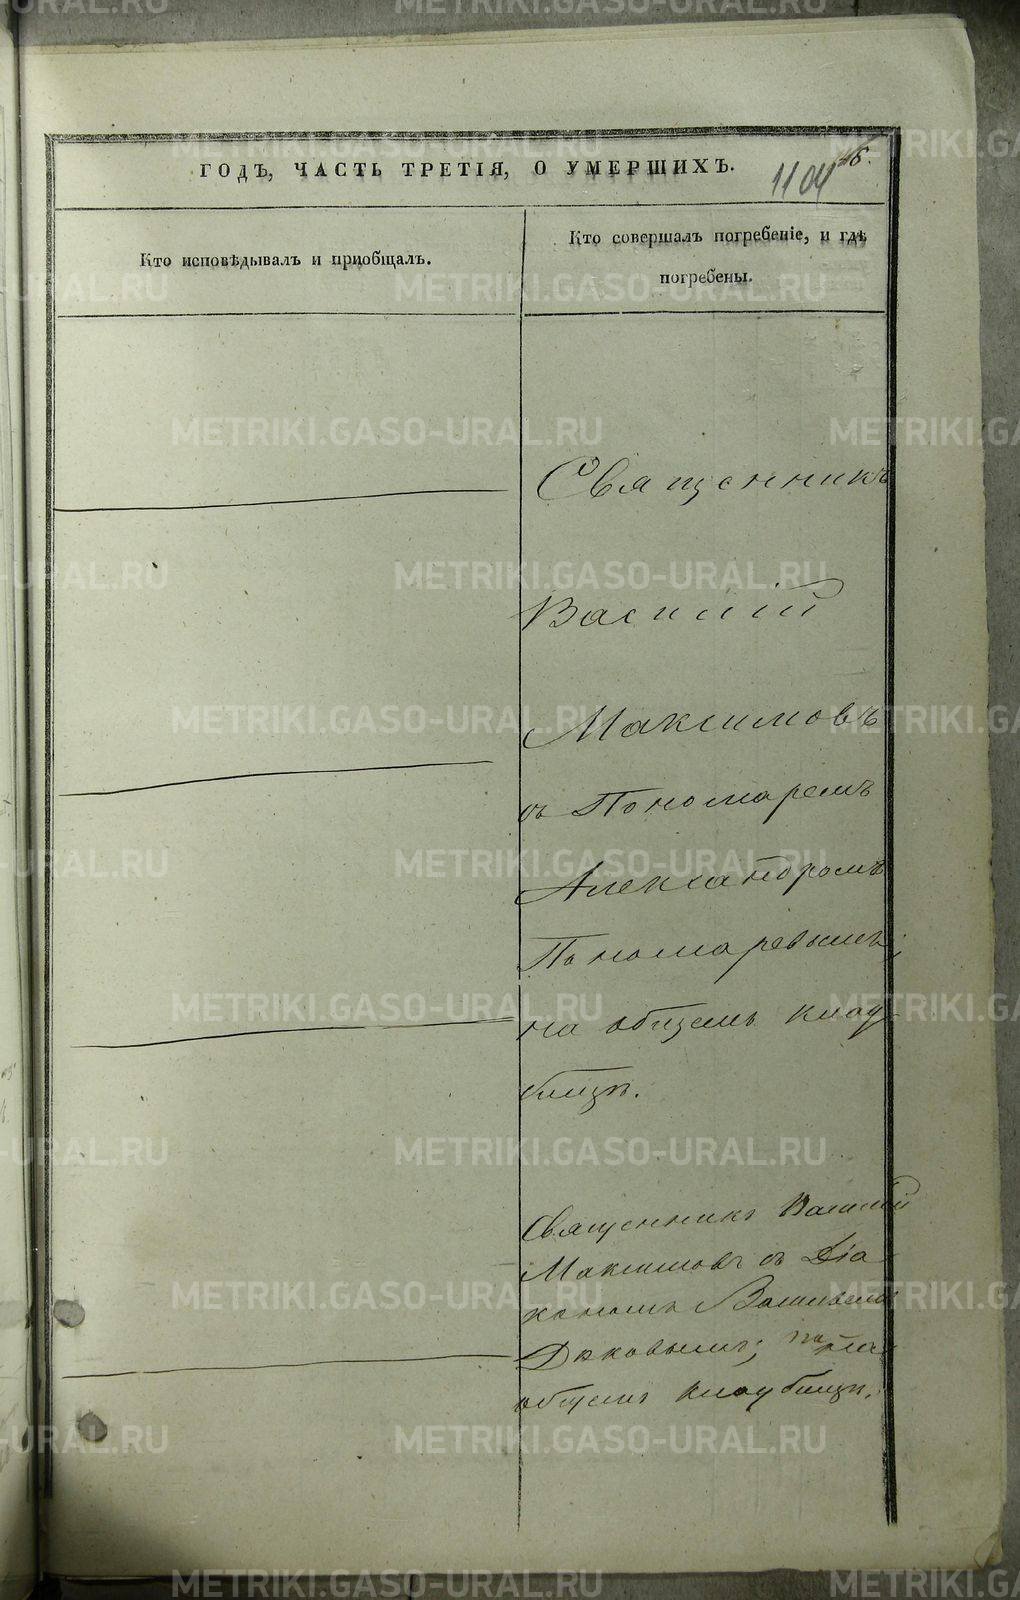 ГОДЪ, ЧАСТЬ ТРЕТІЯ, О УМЕРШИХЪ.
1104
Кто исповѣдывалъ и пріобщалъ.
Кто совершалъ погребеніе, и гдѣ
погребены.
Священникъ
Василій
Максимовъ
съ Пономаремъ
Александромъ
Пономаревымъ;
на общемъ клад
бищѣ.
Священникъ Василій
Максимовъ съ Діа
кономъ Васильемъ
общемъ кладбищѣ.
METRIKI.GASO-URAL.RU